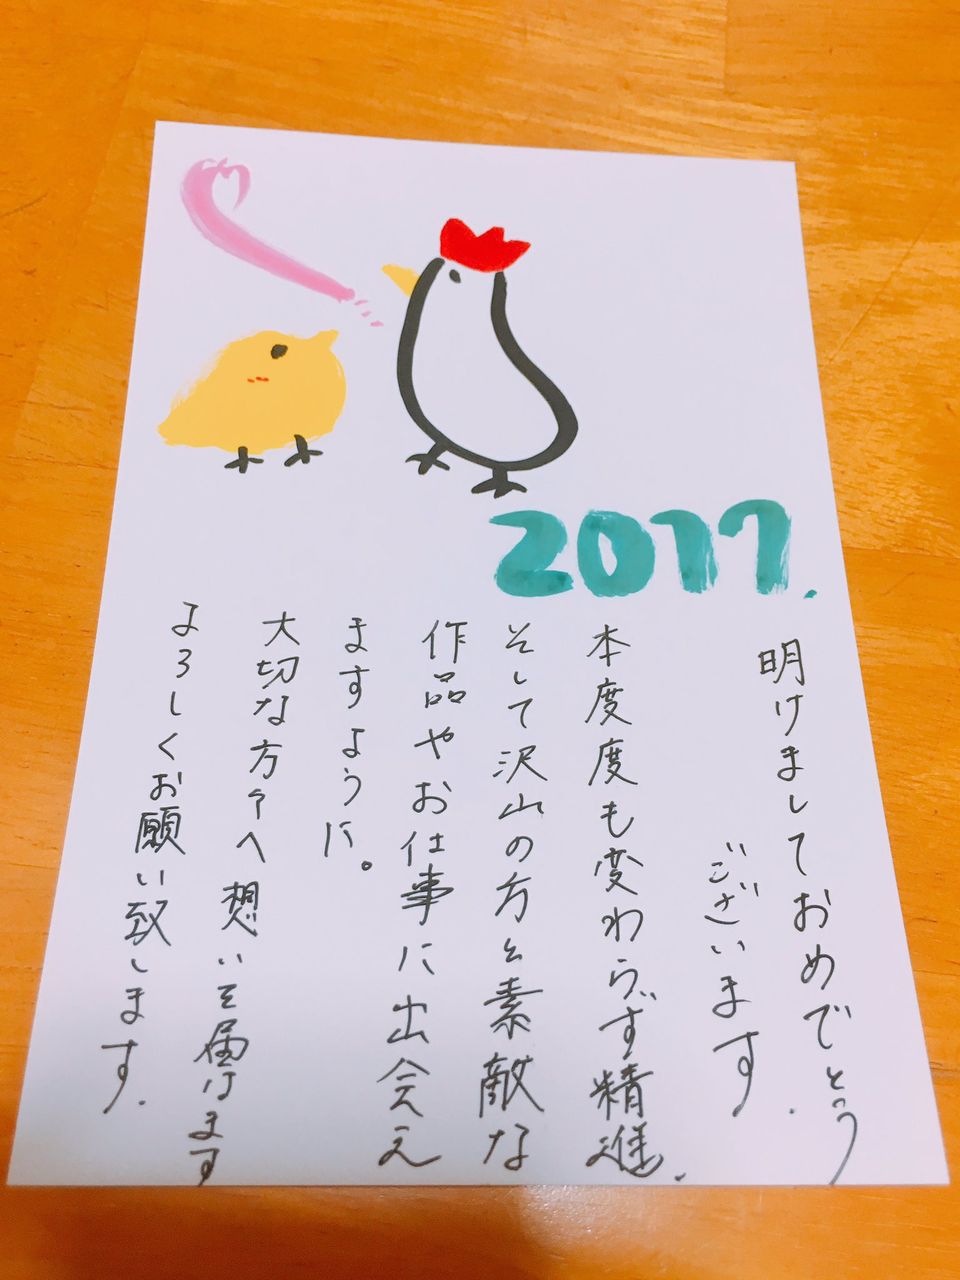 2017.
明けましておめでとう
ございます.
本度度も変わらず精進.
そして沢山の方と素敵な
作品やお仕事に出会え
ますように。
大切な方々へ想いを届けます
よろしくお願い致します.